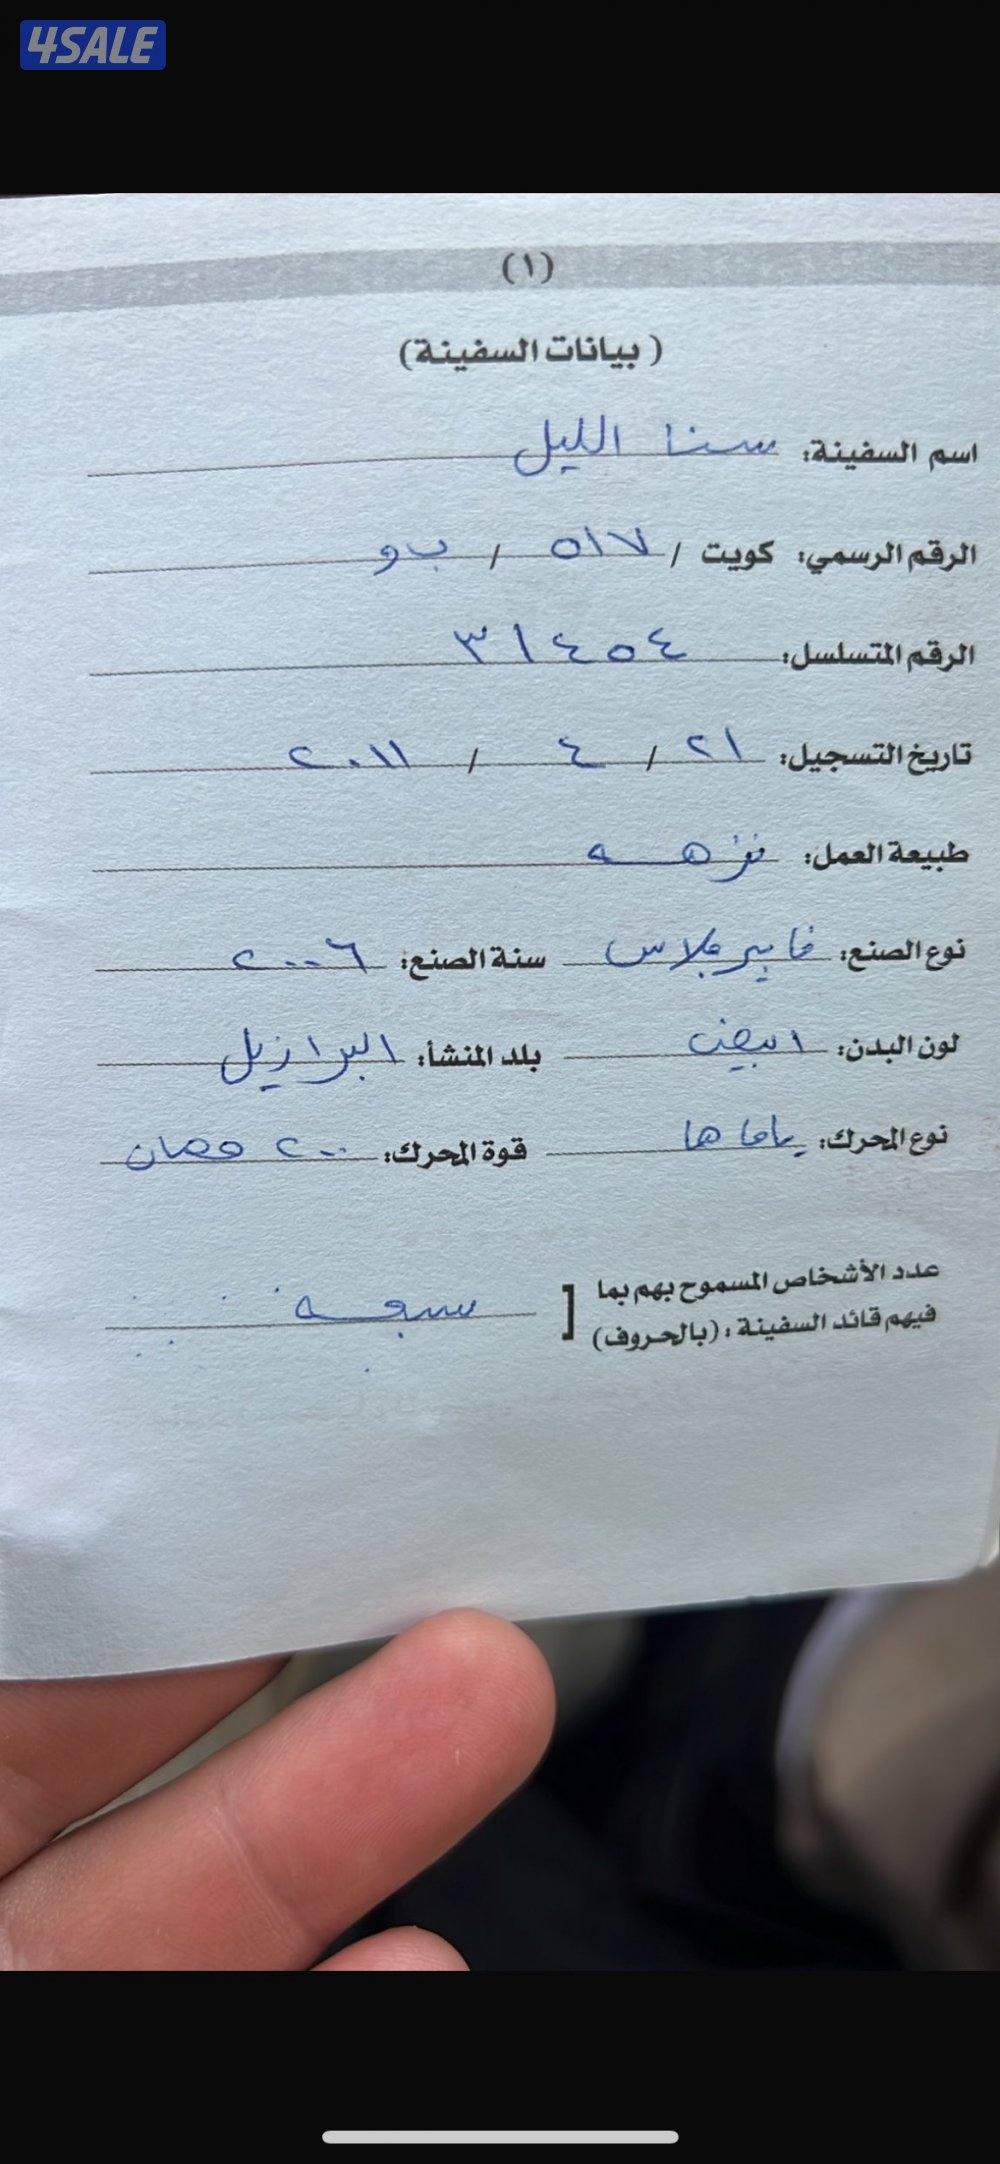 4SALE
(١)
( بيانات السفينة)
اسم السفينة: سنا الليل
الرقم الرسمي: كويت / ٥١٧ / ب و
الرقم المتسلسل: ٣١٤٥٤
تاريخ التسجيل: ٢١ / ٤ / ٢٠١١
طبيعة العمل: نزهه
نوع الصنع: فايبر جلاس سنة الصنع: ٢٠٠٦
لون البدن: ابيض بلد المنشأ: البرازيل
نوع المحرك: ياماها قوة المحرك: ٢٠٠ حصان
عدد الأشخاص المسموح بهم بما
فيهم قائد السفينة : (بالحروف) [ سبعه